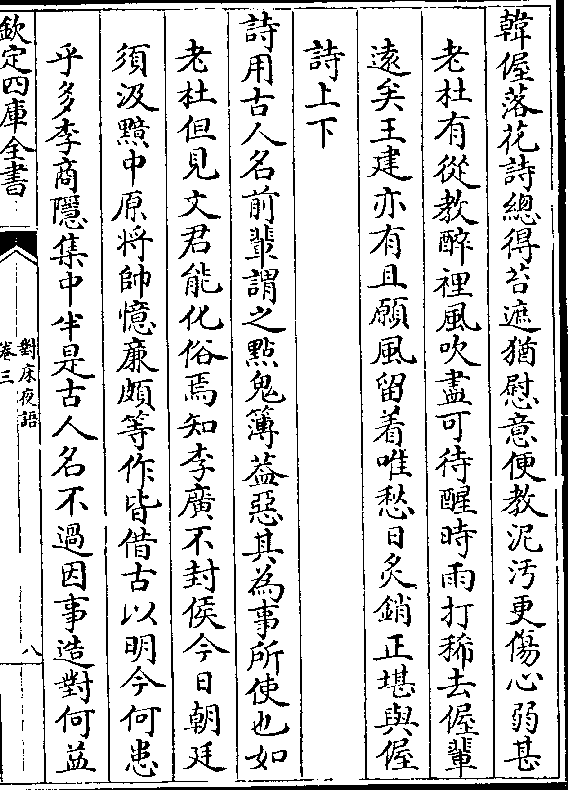 韓偓落花詩總得苔遮猶慰意便教泥汚更傷心弱甚
老杜有從教醉裡風吹盡可待醒時雨打稀去偓輩
遠矣王建亦有且願風留着唯愁日炙銷正堪與偓
詩上下
詩用古人名前輩謂之㸃鬼簿葢惡其為事所使也如
老杜但見文君能化俗焉知李廣不封侯今日朝廷
須汲黯中原將帥憶廉頗等作皆借古以明今何患
乎多李商隱集中半是古人名不過因事造對何益
欽定四庫全書
對床夜語
卷三
八